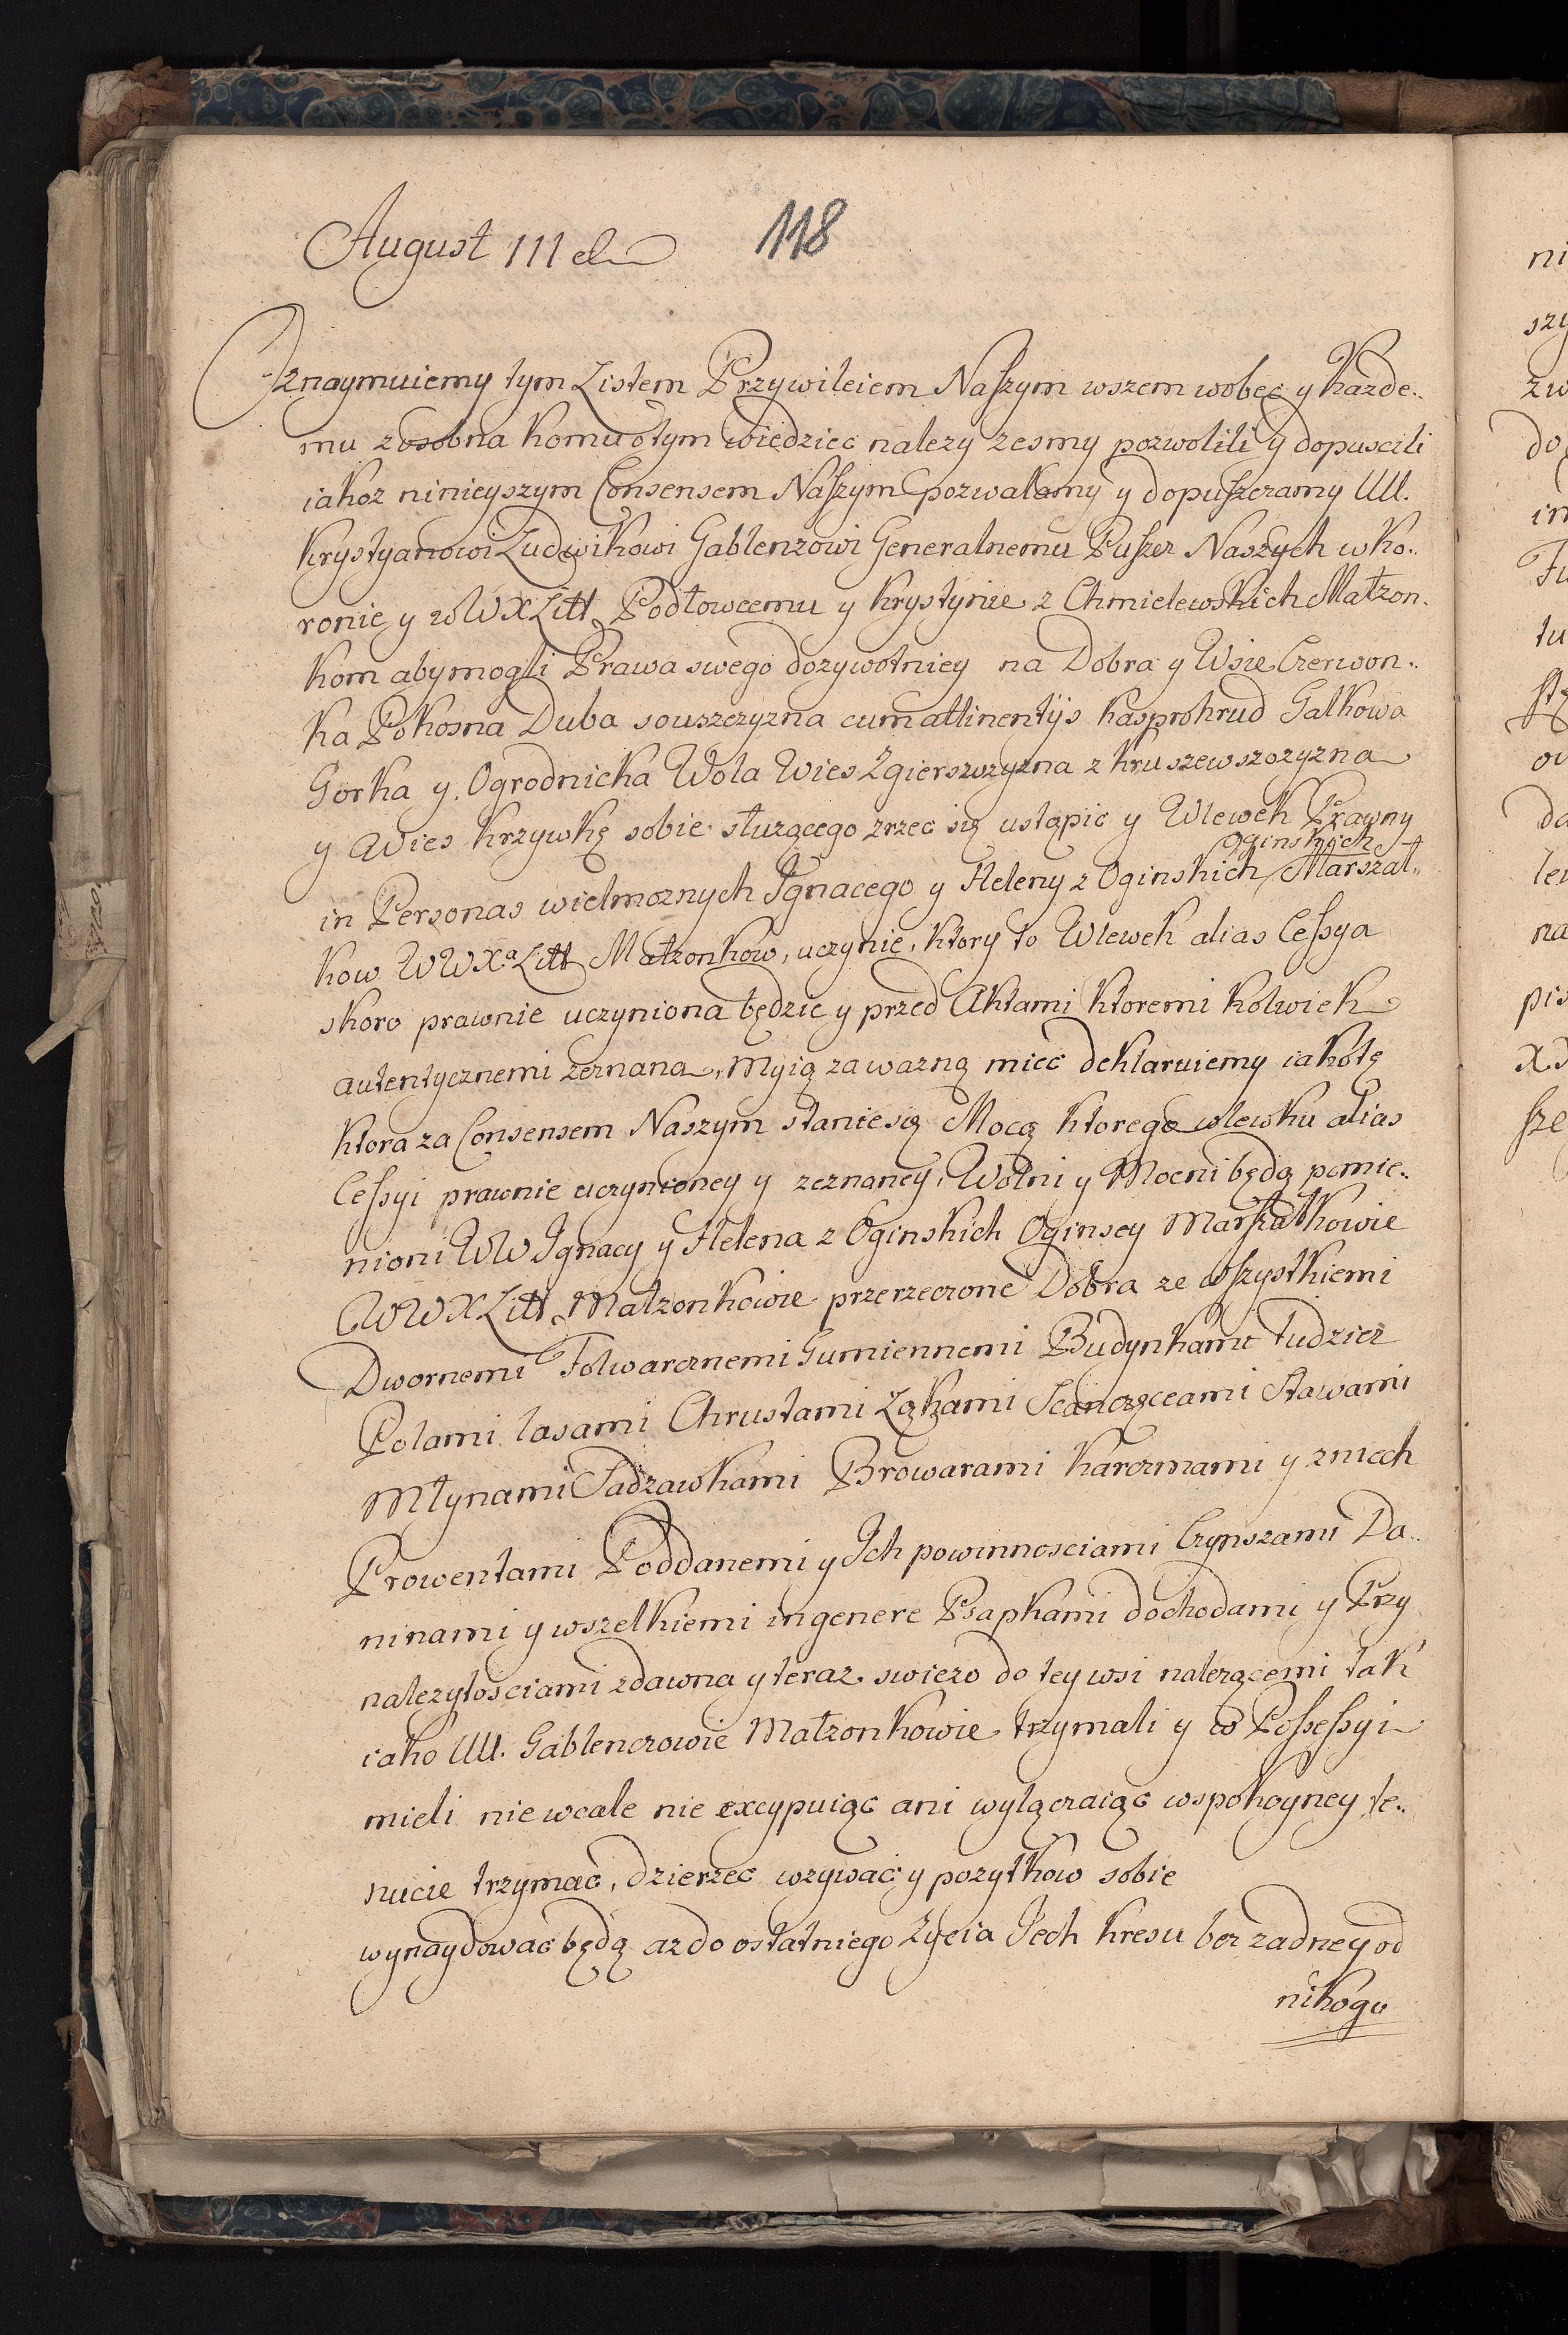 August III el
118
Oznaymuiemy tym Listem Przywileiem Naszym wszem wobec y Kazde..
mu zosobna Komu otym wiedziec nalezy zesmy pozwolili y dopuscili
iakoz ninieyszym Consensem Naszym pozwalamy y dopuszczamy UU.
Krystyanowi Ludwikowi Gablenzowi Generalnemu Puszcz Naszych w Ko..
ronie y w W X Litt Podłowcemu y Krystynie z Chmielewskich Małzon.
kom aby mogli Prawa swego dozywotniey na Dobra y Wsie Czerwon..
ka Pokosna Duba souszczyzna cum attinentijs Kasprokrud Galkowa
Gorka y Ogrodnicka Wola Wies Zgierszczyzna z Kruszewszczyzna
y Wies Krzywkę sobie słuzącego zrzec się ustąpic y Wlewek Prawny
Oginskich
in Personas wielmoznych Ignacego y Heleny z Oginskich Marszał..
kow W W Xa Litt Małzonkow, uczynic, ktory to Wlewek alias Cessya
skoro prawnie uczyniona będzie y przed Aktami ktoremi kolwiek
autentycznemi zeznana, My ią za wazną miec deklaruiemy iako tę
ktora za Consensem Naszym stanie się Mocą ktorego wlewku alias
Cessyi prawnie uczynioney y zeznaney, Wolni y Mocni będą pomie..
nioni WW Ignacy y Helena z Oginskich Oginscy Marszałkowie
W W X Litt Małzonkowie przerzeczone Dobra ze wszystkiemi
Dwornemi Folwarcznemi Gumiennemi Budynkami tudziez
Polami lasami Chrustami Łąkami Sianozęceami Stawami
Młynami Sadzawkami Browarami Karczmami y znich
Prowentami Poddanemi y Ich powinnosciami Czynszami Da..
ninami y wszelkiemi ingenere Psapkami dochodami y Przy
nalezytosciami zdawna y teraz swiezo do tey wsi nalezącemi tak
iako UU. Gablenczowie Małzonkowie trzymali y w Possessyi
mieli nie wcale nie excypuiąc ani wyłączaiąc wspokoyney te..
nucie trzymac, dzierzec wzywac y pozytkow sobie
wynaydowac będą az do ostatniego Zycia Jech kresu bez zadney od
nikogo